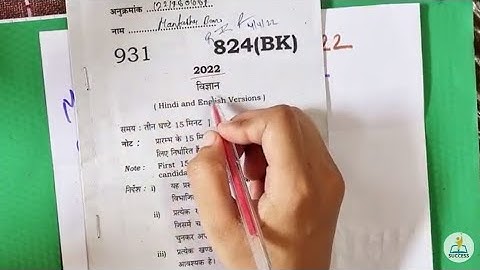 अनुक्रमांक
नाम
931
824(BK)
2022
विज्ञान
( Hindi and English Versions )
समय : तीन घण्टे 15 मिनट
नोट : प्रारम्भ के 15 मि
लिए निर्धारित है
Note : First 15
candida
निर्देश : i) यह प्रश
विभाजित
ii) प्रत्येक
जिसमें च
चुनकर अप
iii) प्रत्येक खण्ड
आवश्यक है।
22
SUCCESS